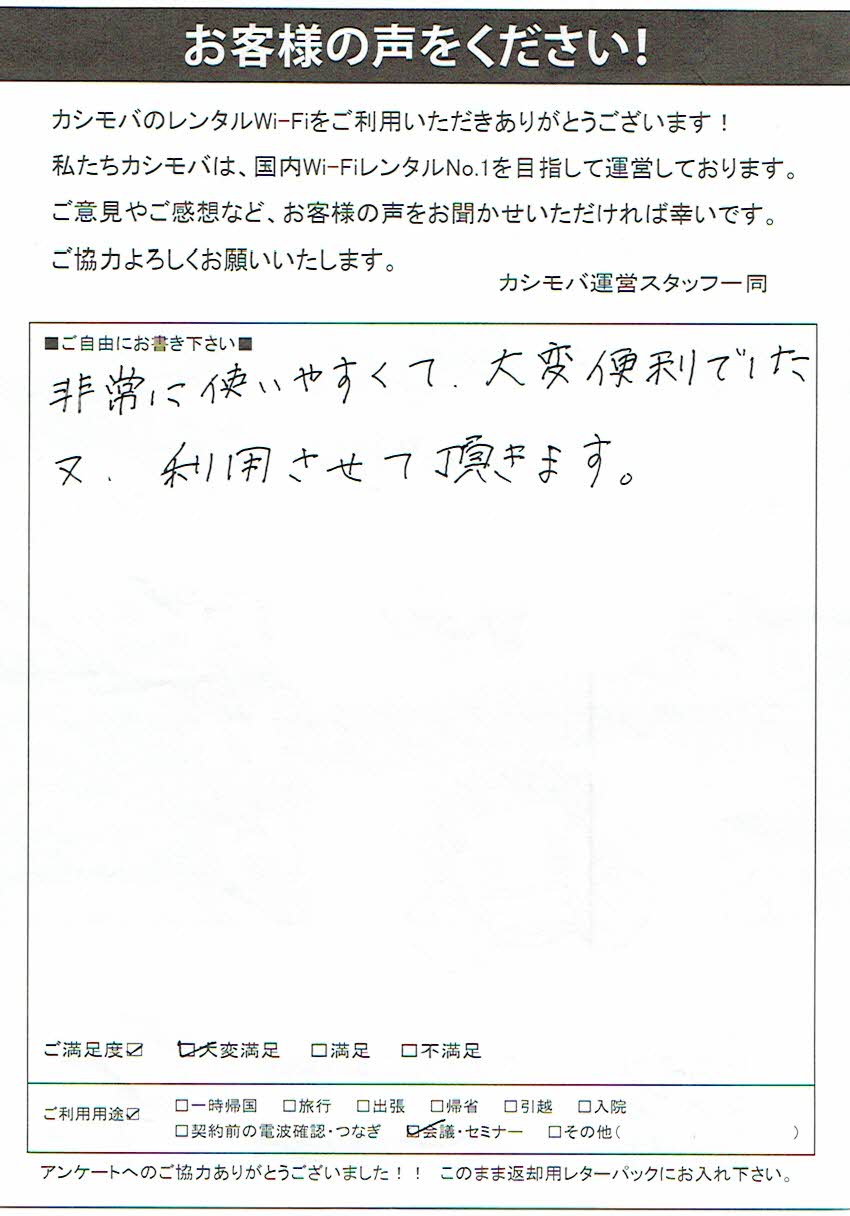 お客様の声をください!
カシモバのレンタルWi-Fiをご利用いただきありがとうございます！
私たちカシモバは、国内Wi-FiレンタルNo.1を目指して運営しております。
ご意見やご感想など、お客様の声をお聞かせいただければ幸いです。
ご協力よろしくお願いいたします。
カシモバ運営スタッフ一同
■ご自由にお書き下さい■
非常に使いやすくて、大変便利でした
又、利用させて頂きます。
ご満足度☑ ☑大変満足 □満足 □不満足
ご利用用途☑ □一時帰国 □旅行 □出張 □帰省 □引越 □入院
□契約前の電波確認・つなぎ ☑会議・セミナー □その他( )
アンケートへのご協力ありがとうございました！！ このまま返却用レターパックにお入れ下さい。